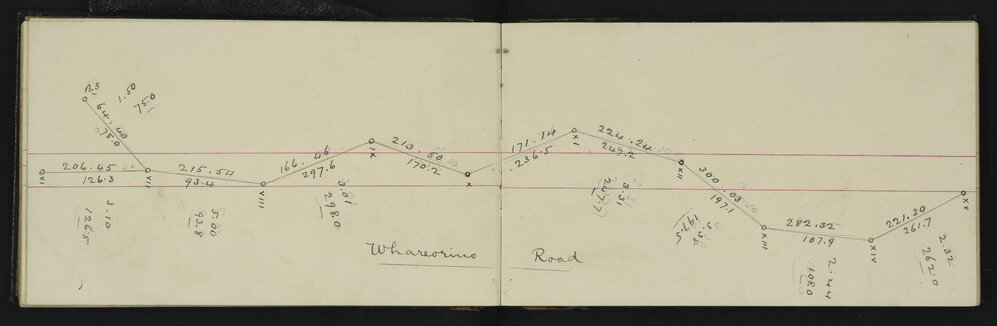 A.S.
1.50
75.0
64.40
75.0
206.45
126.3
VI
3.10
126.5
VII
215.54
93.4
5.00
93.8
VIII
166.46
297.6
3.01
298.0
IX
213.50
170.2
X
171.14
236.5
XI
224.24
247.2
3.31
247.7
XII
300.03
197.1
3.36
197.5
XIII
282.32
107.9
2.44
108.0
XIV
221.20
261.7
2.32
262.0
XV
Whareorino Road